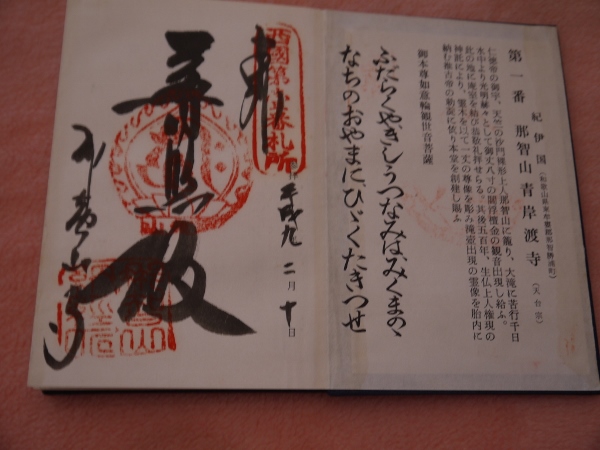 第一番 那智山青岸渡寺 (天台宗)
紀伊国 (和歌山県東牟婁郡那智勝浦町)
仁徳帝の御宇、天竺の沙門裸形上人那智山に籠り、大滝に苦行千日
水中より光明赫々として御丈八寸の閻浮檀金の観音出現し給ふ。
此の地に庵室を結び恭敬礼拝せらる。其後五百年、生仏上人権現の
神託により、霊木を以て一丈の尊像を彫み滝壺出現の霊像を胎内に
納む推古帝の勅説に依り本堂を創建し賜ふ
御本尊如意輪観世音菩薩
ふだらくやきしうつなみはみくまのゝ
なちのおやまにひゞくたきつせ
西國第一番札所
奉
平成九 二月十日
普照殿
那智山寺